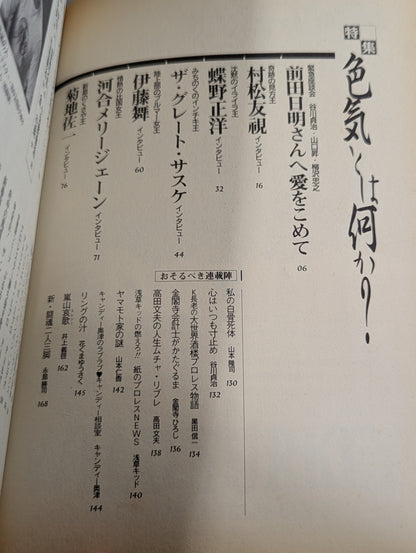 特集
色気とは何か!
緊急座談会 谷川貞治・山口昇・柳沢忠之
前田日明さんへ愛をこめて 06
奇跡の見方王
村松友視 インタビュー 16
沈黙のイライラ王
蝶野正洋 インタビュー 32
みちのくのインチキ王
ザ・グレート・サスケ インタビュー 44
陸上部のブルマー女王
伊藤舞 インタビュー 60
情熱の比国女王
河合メリージェーン インタビュー 71
菊地佐一 インタビュー 76
おそるべき連載陣
私の白骨死体 山本隆司 130
心はいつも寸止め 谷川貞治 132
K長老の大世界酒樓プロレス物語 黒田信一 134
金閣寺会計士がかたぐるま 金閣寺ひろし 136
高田文夫の人生ムチャ・リブレ 高田文夫 138
浅草キッドの燃えろ!!紙のプロレスNEWS 浅草キッド 140
ヤマモト家の謎 山本仁香 142
キャンディー奥津のラブラブ♥キャンディー相談室 キャンディー奥津 144
リングの汁 花くまゆうさく 145
嵐山哀歌 井上義啓 162
新・闘魂二人三脚 永島勝司 168